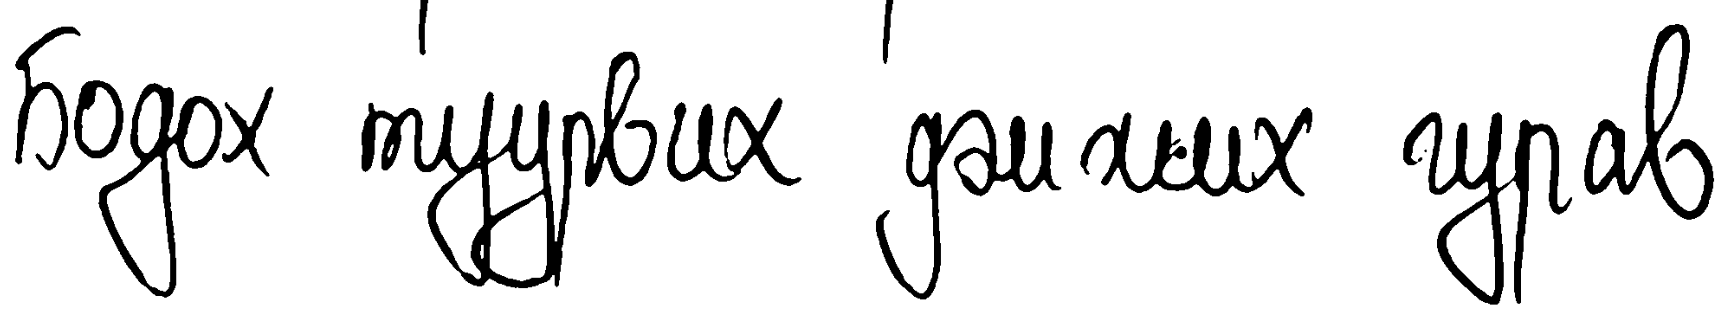 Бодох туурвих дэмжих гурав